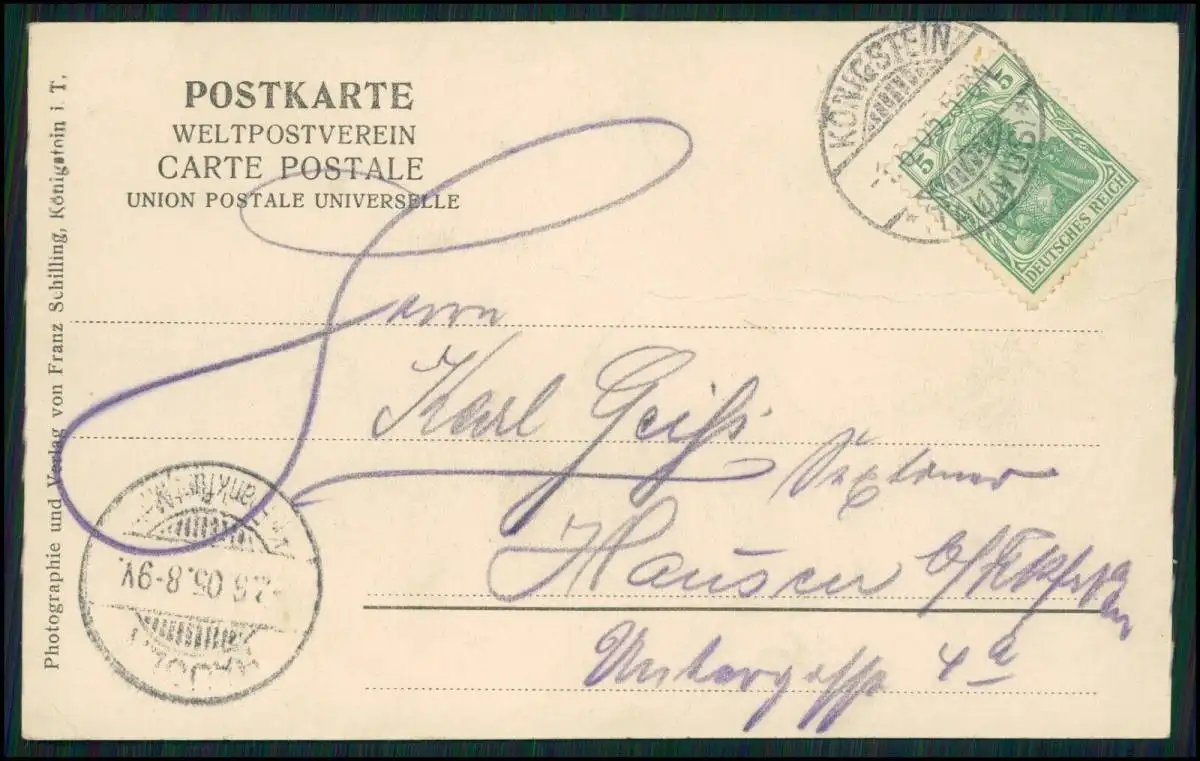 POSTKARTE
WELTPOSTVEREIN
CARTE POSTALE
UNION POSTALE UNIVERSELLE
KÖNIGSTEIN
5 5
DEUTSCHES REICH
Herrn
Karl Geiß
Hausen b/Frkfrt
Untergasse 4a
2.6.05.8-9V.
Photographie und Verlag von Franz Schilling, Königstein i. T.